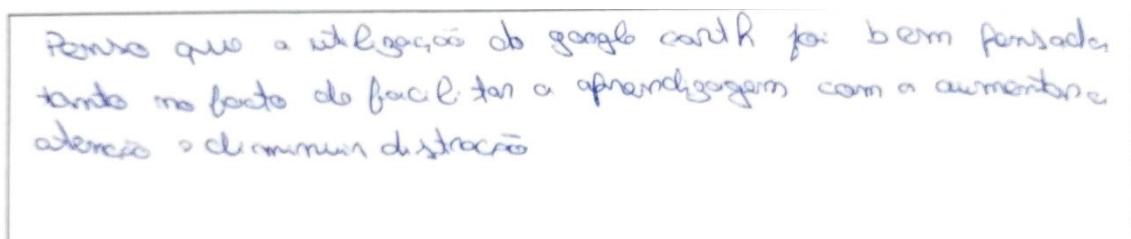 Penso que a utilização do google earth foi bem pensada
tanto no facto de facilitar a aprendizagem com a aumentar a
atenção e diminuir distração